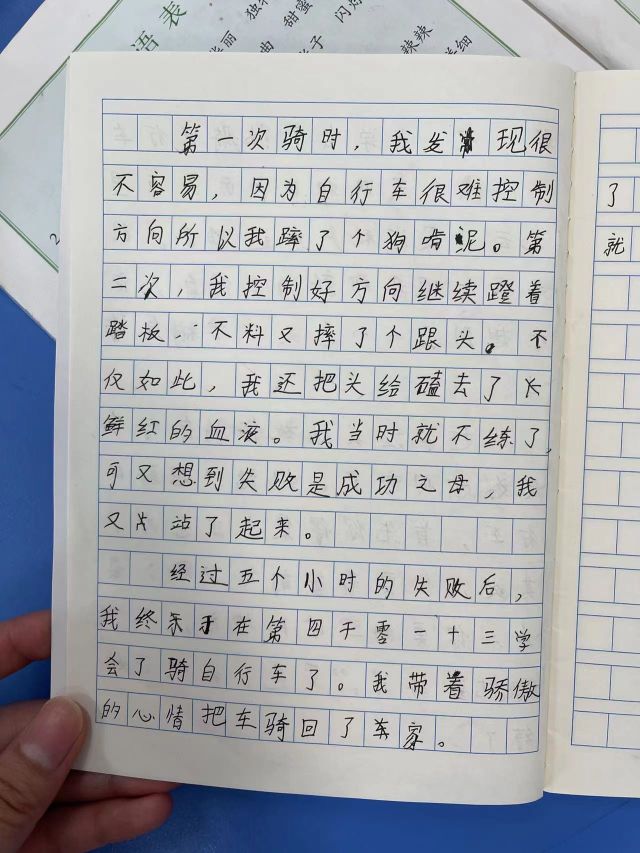 语表
丽
独
甜蜜
闪
曲
子
辣辣
细
2
第一次骑时，我发现很
不容易，因为自行车很难控制
方向所以我蹿了个狗啃泥。第
二次，我控制好方向继续蹬着
踏板，不料又摔了个跟头。不
仅如此，我还把头给磕去了
鲜红的血液。我当时就不练了，
可又想到失败是成功之母，我
又站了起来。
经过五个小时的失败后，
我终于在第四千零一十三学
会了骑自行车了。我带着骄傲
的心情把车骑回了家。
了
就